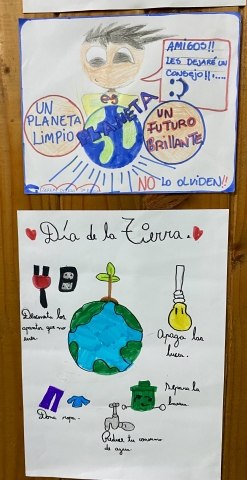 AMIGOS!!
LES DEJARÉ UN
CONSEJO!!,....
UN
PLANETA
LIMPIO
es
PLANETA
UN
FUTURO
BRILLANTE
NO LO OLVIDEN!!
Día de la Tierra.
Desconecta los
aparatos que no
usas.
Apaga las
luces.
Dona ropa.
Separa la
basura.
Reduce tu consumo
de agua.